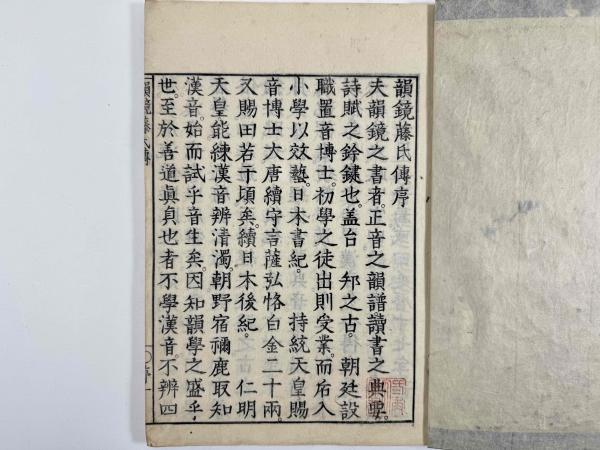 韻鏡藤氏傳序
夫韻鏡之書者。正音之韻譜讀書之典要。
詩賦之鈐鍵也。蓋台 知之古。朝廷設
職置音博士。初學之徒出則受業。而后入
小學以效藝。日本書紀。 持統天皇賜
音博士大唐續守言薩弘恪白金二十兩。
又賜田若干頃矣。續日本後紀。 仁明
天皇能練漢音辨清濁。朝野宿禰鹿取知
漢音。始而試乎音生矣。因知韻學之盛乎
世。至於善道眞貞也者不學漢音。不辨四
韻鏡藤氏傳
〇序一